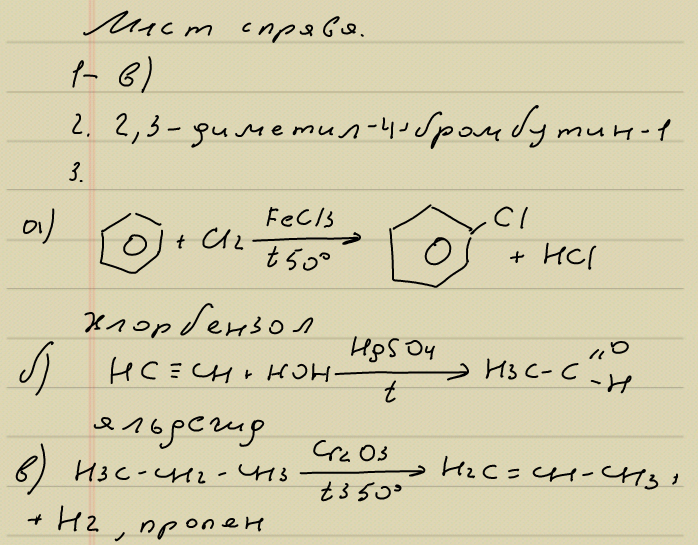 Лист справа.
1- в)
2. 2,3-диметил-4-бромбутин-1
3.
а) + Cl2 FeCl3 t 50° Cl + HCl
хлорбензол
б) HC ≡ CH + HOH HgSO4 t H3C - C =O -H
альдегид
в) H3C - CH2 - CH3 Cr2O3 t 350° H2C = CH - CH3,
+ H2, пропен